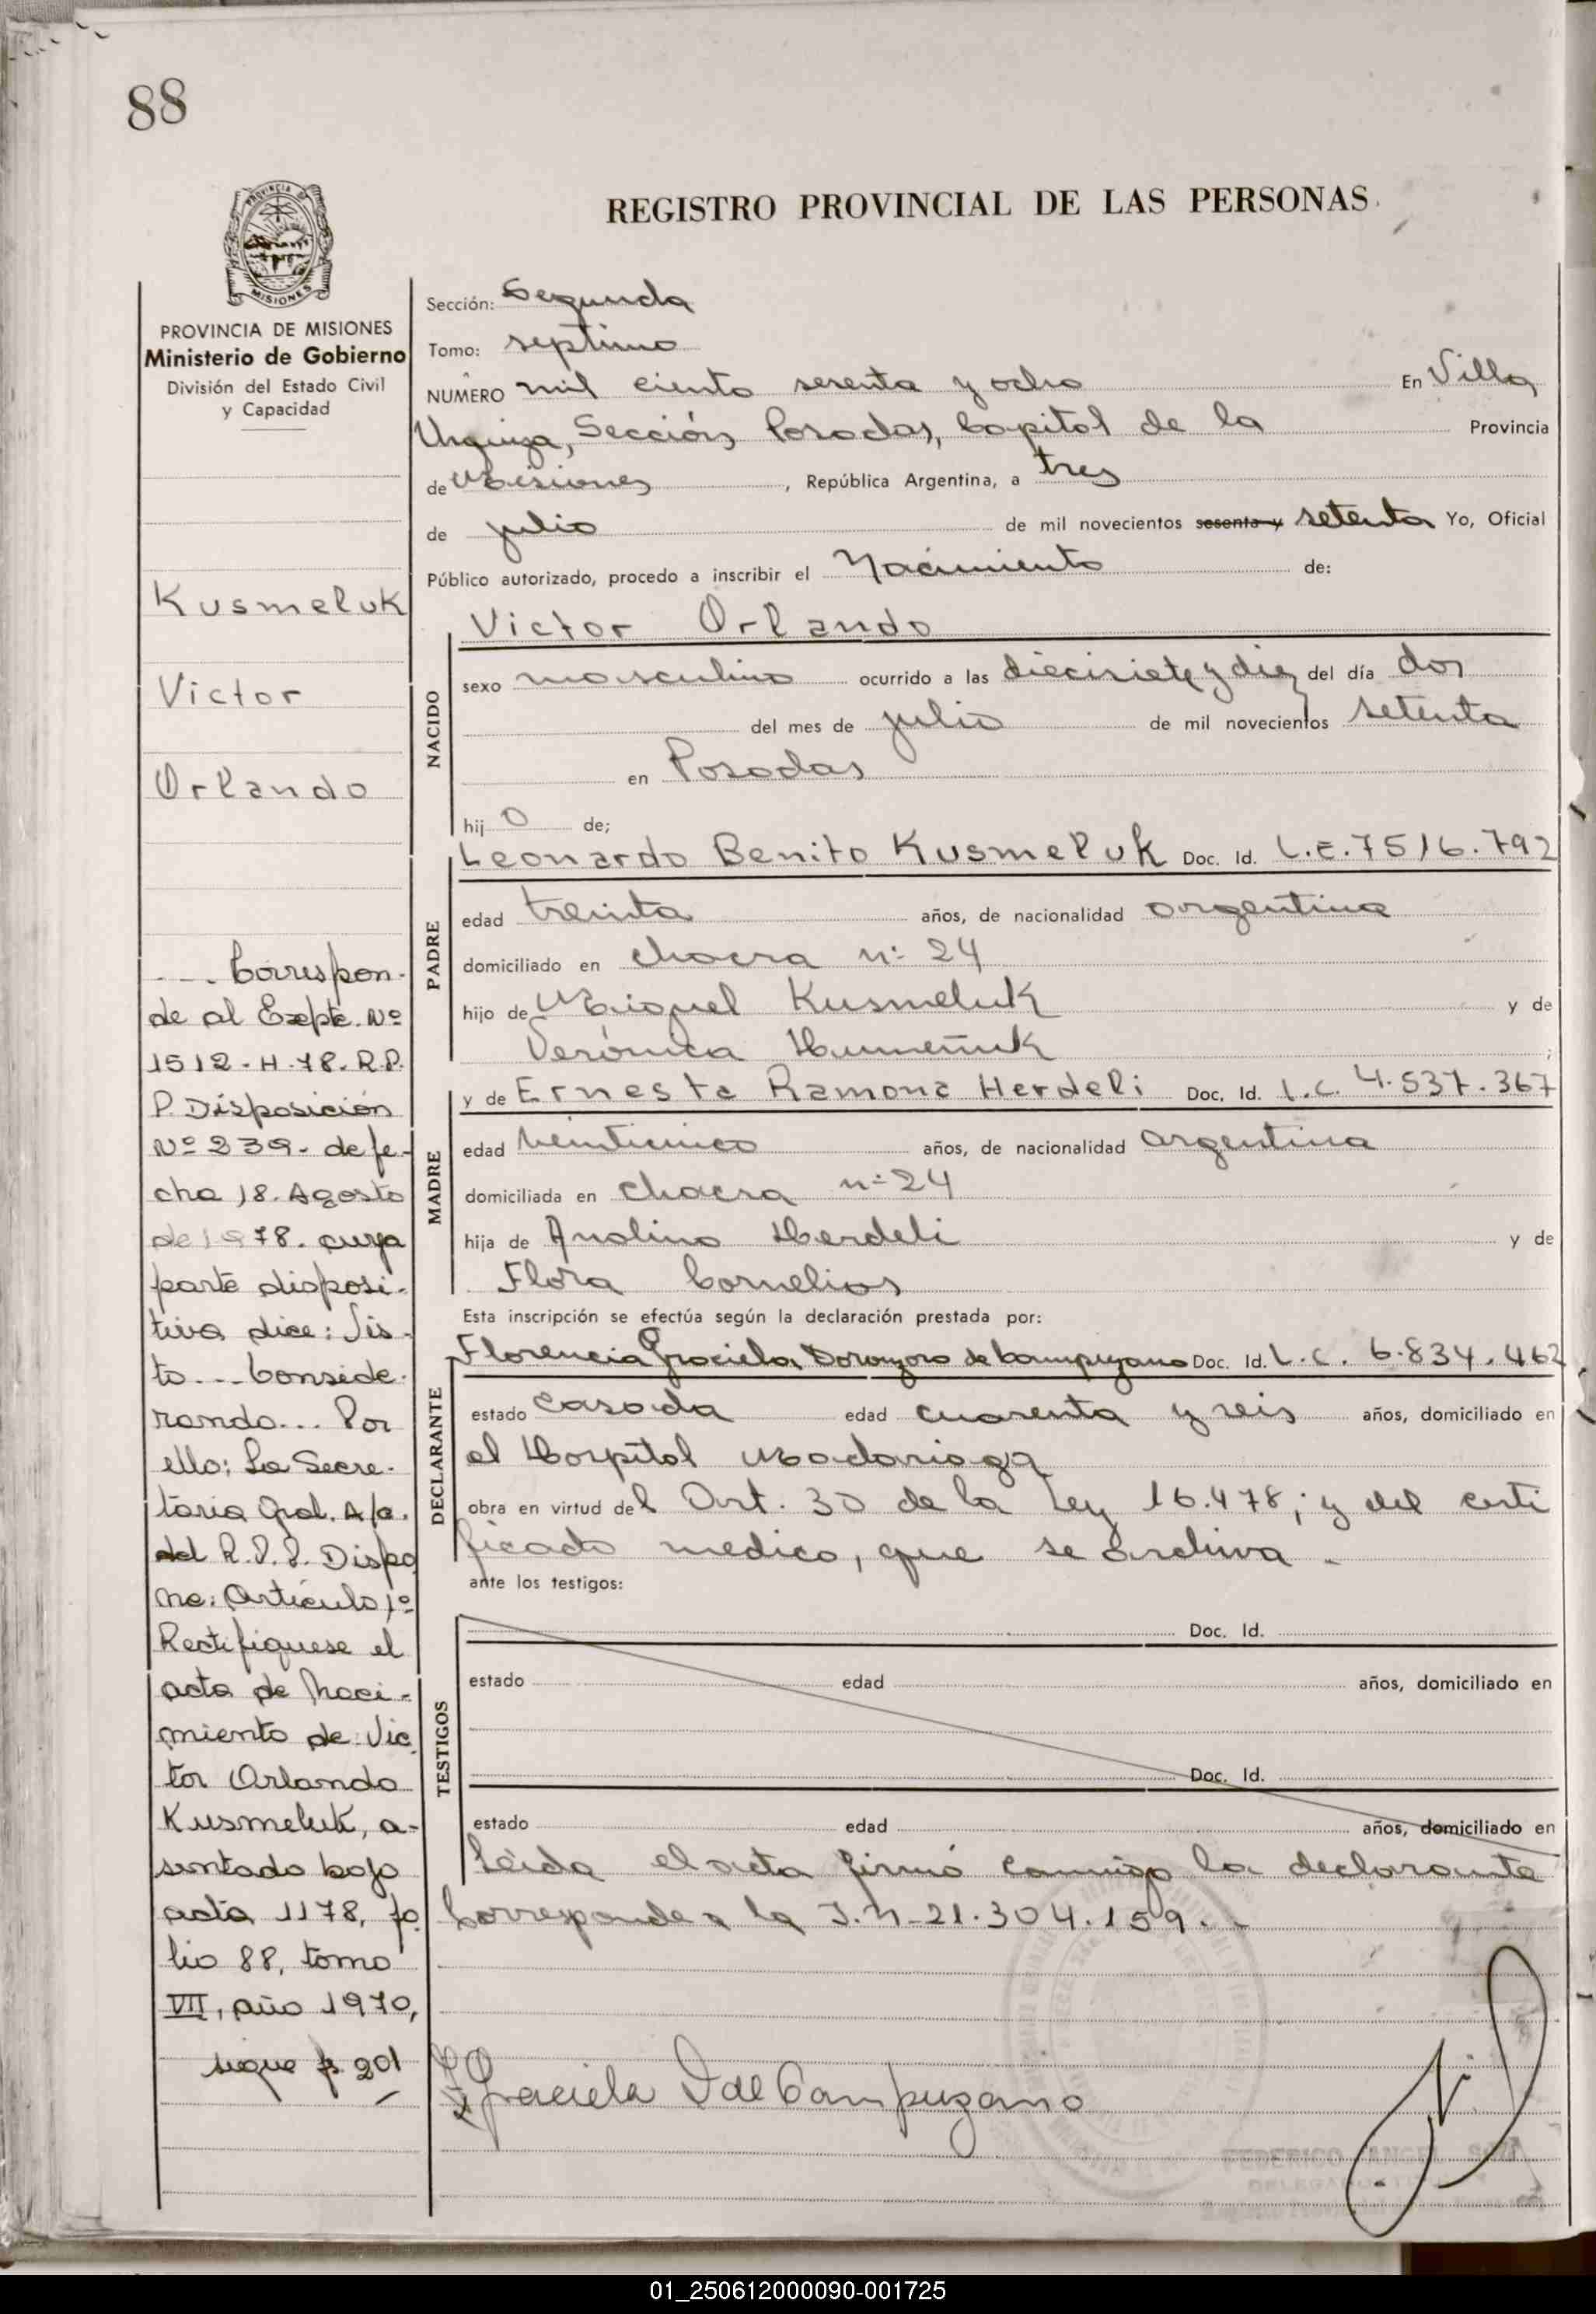 88
REGISTRO PROVINCIAL DE LAS PERSONAS
PROVINCIA
MISIONES
PROVINCIA DE MISIONES
Ministerio de Gobierno
División del Estado Civil
y Capacidad
Kusmeluk
Victor
Orlando
... Correspon-
de al Expte. Nº
1512-H-78. R.P.
P. Disposición
Nº 239- de fe-
cha 18. Agosto
de 1978. cuya
parte disposi-
tiva dice: Vis-
to... Conside-
rando... Por
ello: La Secre-
taria Gral. A/c.
del R.P.P. Dispo
ne: Artículo 1º
Rectifiquese el
acta de Naci-
miento de Vic
tor Orlando
Kusmeluk, a-
sentado bajo
acta 1178, fo
lio 88, tomo
VII, año 1970,
sigue f. 201
Sección: Segunda
Tomo: septimo
NÚMERO mil ciento setenta y ocho En Villa
Urquiza, Sección Posadas, Capital de la Provincia
de Misiones, República Argentina, a tres
de julio de mil novecientos sesenta y setenta Yo, Oficial
Público autorizado, procedo a inscribir el Nacimiento de:
NACIDO
Victor Orlando
sexo masculino ocurrido a las diecisiete y diez del día dos
del mes de julio de mil novecientos setenta
en Posadas
hijo de;
PADRE
Leonardo Benito Kusmeluk Doc. Id. L.E. 7516.792
edad treinta años, de nacionalidad argentina
domiciliado en chacra nº 24
hijo de Miguel Kusmeluk y de
Verónica Humeñuk ;
MADRE
y de Ernesta Ramona Herdeli Doc. Id. L.C. 4.537.367
edad veinticinco años, de nacionalidad argentina
domiciliada en chacra nº 24
hija de Anolino Herdeli y de
Flora Cornelios
Esta inscripción se efectúa según la declaración prestada por:
DECLARANTE
Florencia Graciela de Campuzano Doc. Id. L.C. 6.834.462
estado casada edad cuarenta y seis años, domiciliado en
el Hospital Madariaga
obra en virtud del Art. 30 de la Ley 16.478; y del certi
ficado medico, que se archiva -
ante los testigos:
TESTIGOS
Doc. Id.
estado edad años, domiciliado en
Doc. Id.
estado edad años, domiciliado en
Leida el acta firmó conmigo la declarante
Corresponde a la I.N-21.304.159.-
Graciela D de Campuzano
FEDERICO ANGEL
01_250612000090-001725